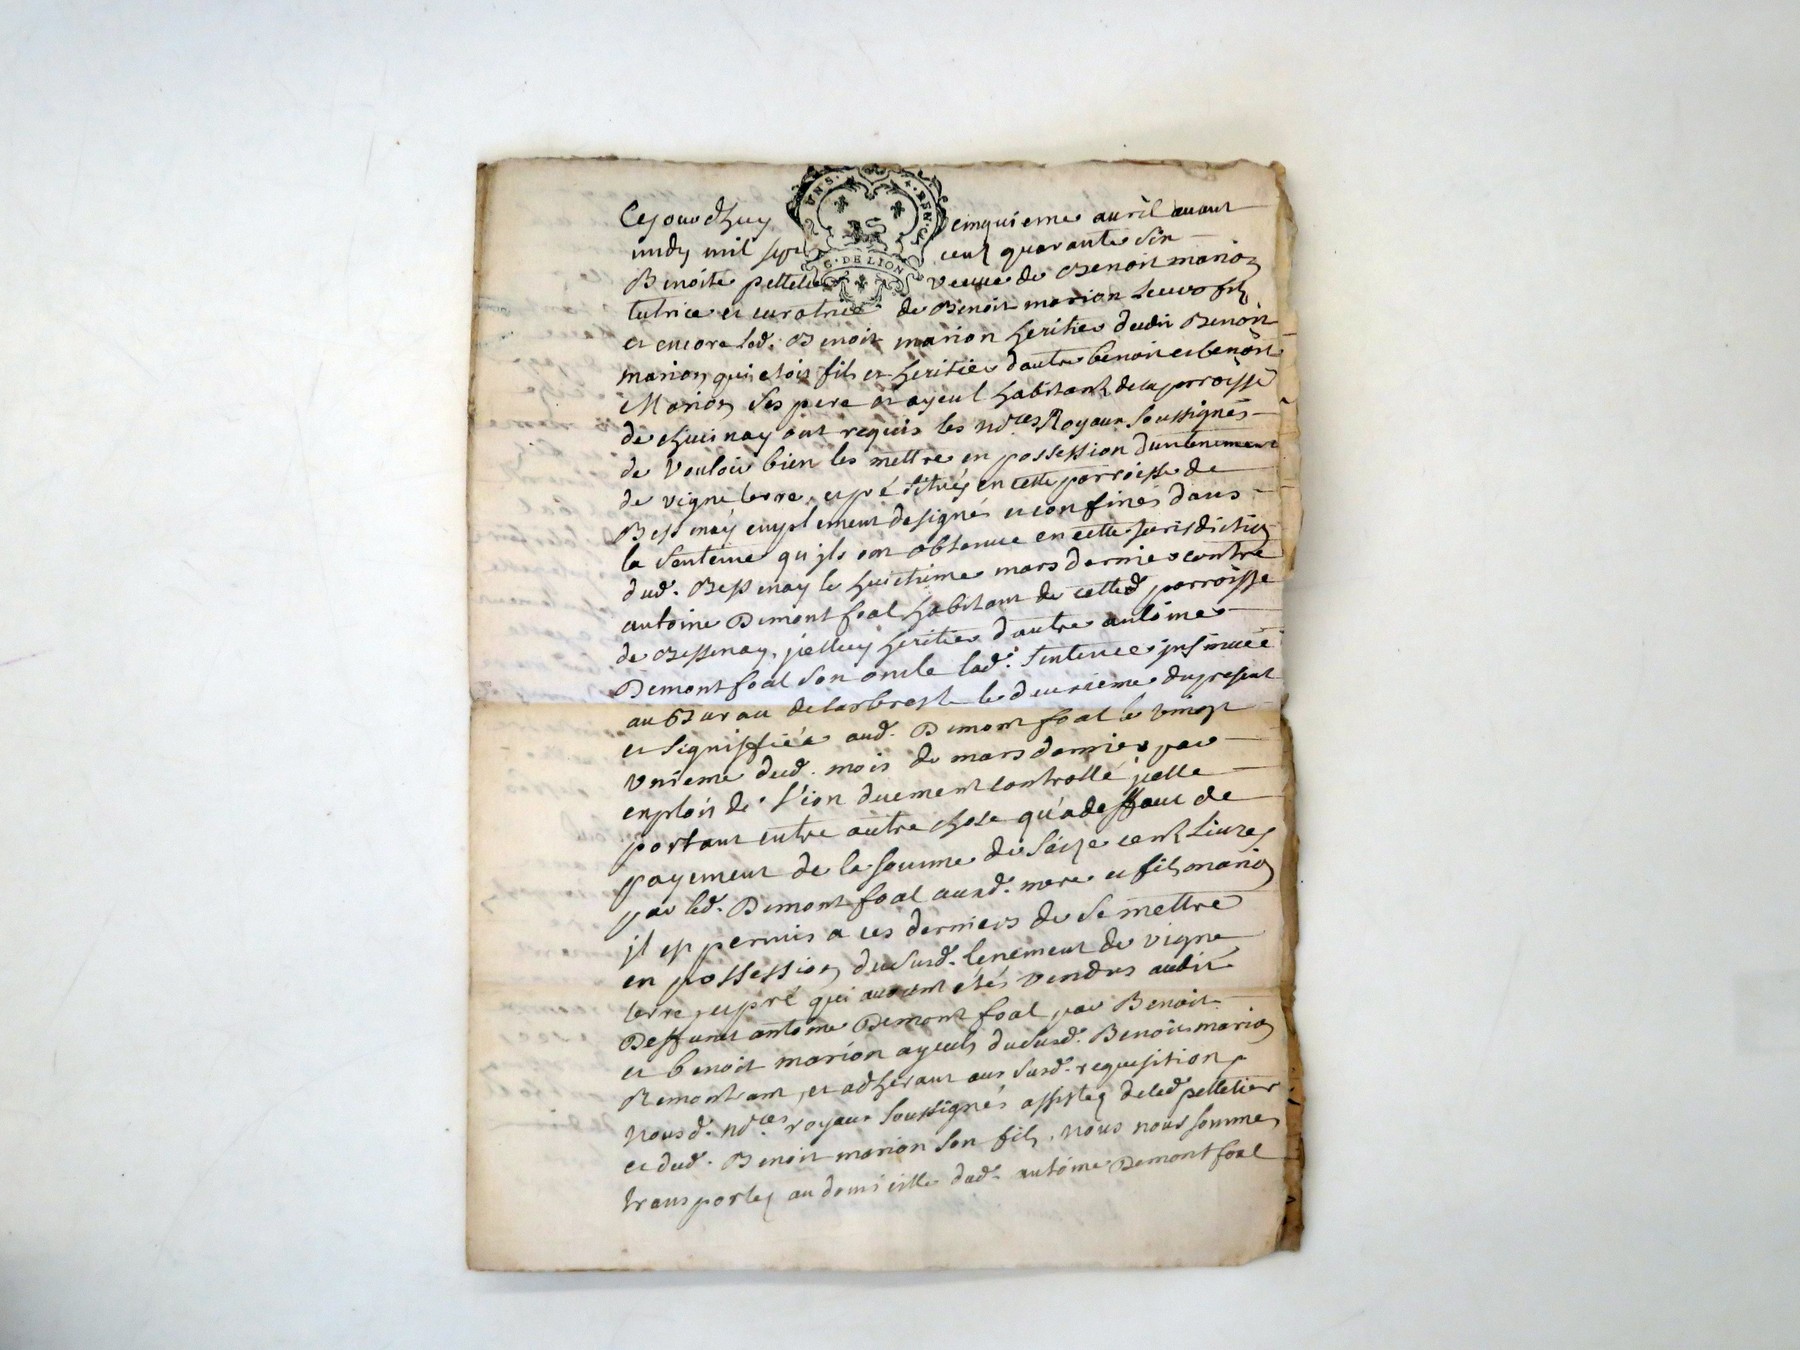 UN S. 4. DEN. G. DE LION
Cejourdhuy cinquieme avril avant
midy mil sept cent quarante six
Benoite pelletier veuve de Benoit marion
tutrice et curatrice de Benoit marion leur fils
et encore led. Benoit marion heritier dudit Benoit
marion qui etoit fils et heritier dautre benoit et benoit
Marion ses pere et ayeul habitant de la parroisse
de chevinay ont requis les ndres Royaux soussignés
de vouloir bien les mettre en possession dun tenement
de vigne terre, et pré situés en cette parroisse de
Bessenay emplement designés et confinés dans
la sentence quils ont obtenue en cette jurisdiction
dud. Bessenay le huictieme mars dernier contre
antoine Demontfoal habitant de cetted parroisse
de Bessenay, jcelluy heritier dautre antoine
Demontfoal son oncle lad. sentence jnsinuée
au Bureau de larbresle le deuxieme du present
et signiffiée aud. Demontfoal le vingt
unieme dud. mois de mars dernier par
exploit de duement controllé jcelle
portant entre autre chose qu'a deffaut de
payement de la somme de seize cent livres
par led. Demontfoal auxd. mere et fils marion
jl est permis a ces derniers de se mettre
en possession du susd. tenement de vigne
terre, et pré qui avoient étés vendus audit
Deffunt antoine Demontfoal par Benoit
et benoit marion ayeuls du susd. Benoit marion
Remontrant, et adherant aux susd. requisition
nousd. ndres royaux soussignés assistés de lad pelletier
et dud. Benoit marion son fils, nous nous sommes
transportés au domicille dud. antoine Demontfoal